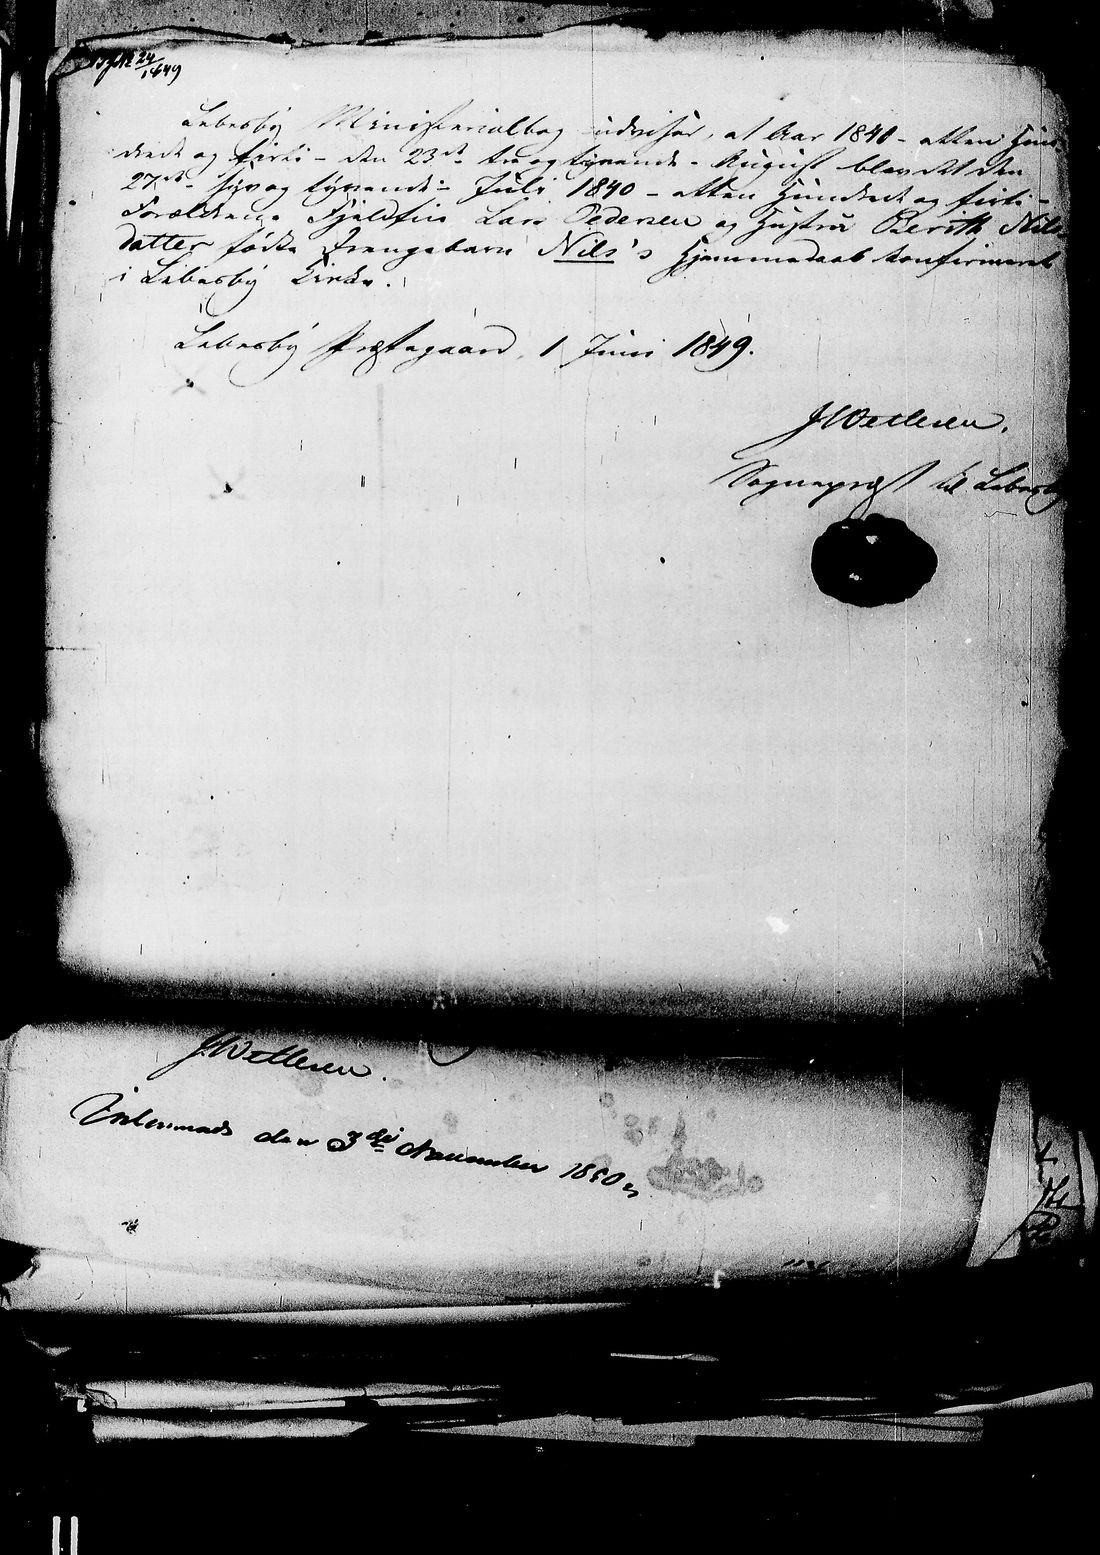 24/1849
Lebesby Ministerialbog udviser, at Aar 1840 - atten Hun-
drede og firti - den 23de tre og tyvende - August blev det den
27de - syv og tyvende - Juli 1840 - atten Hundrede og firti -
Forældrene Fjeldfin Lars Pedersen og Hustru Berith Nils-
datter fødte Drengebarn Nils's Hjemmedaab konfirmeret
i Lebesby Kirke.
Lebesby Præstegaard, 1 Juni 1849.
J Wetlesen.
Sognepræst til Lebesby
J. Wetlesen.
den 3die November 1850